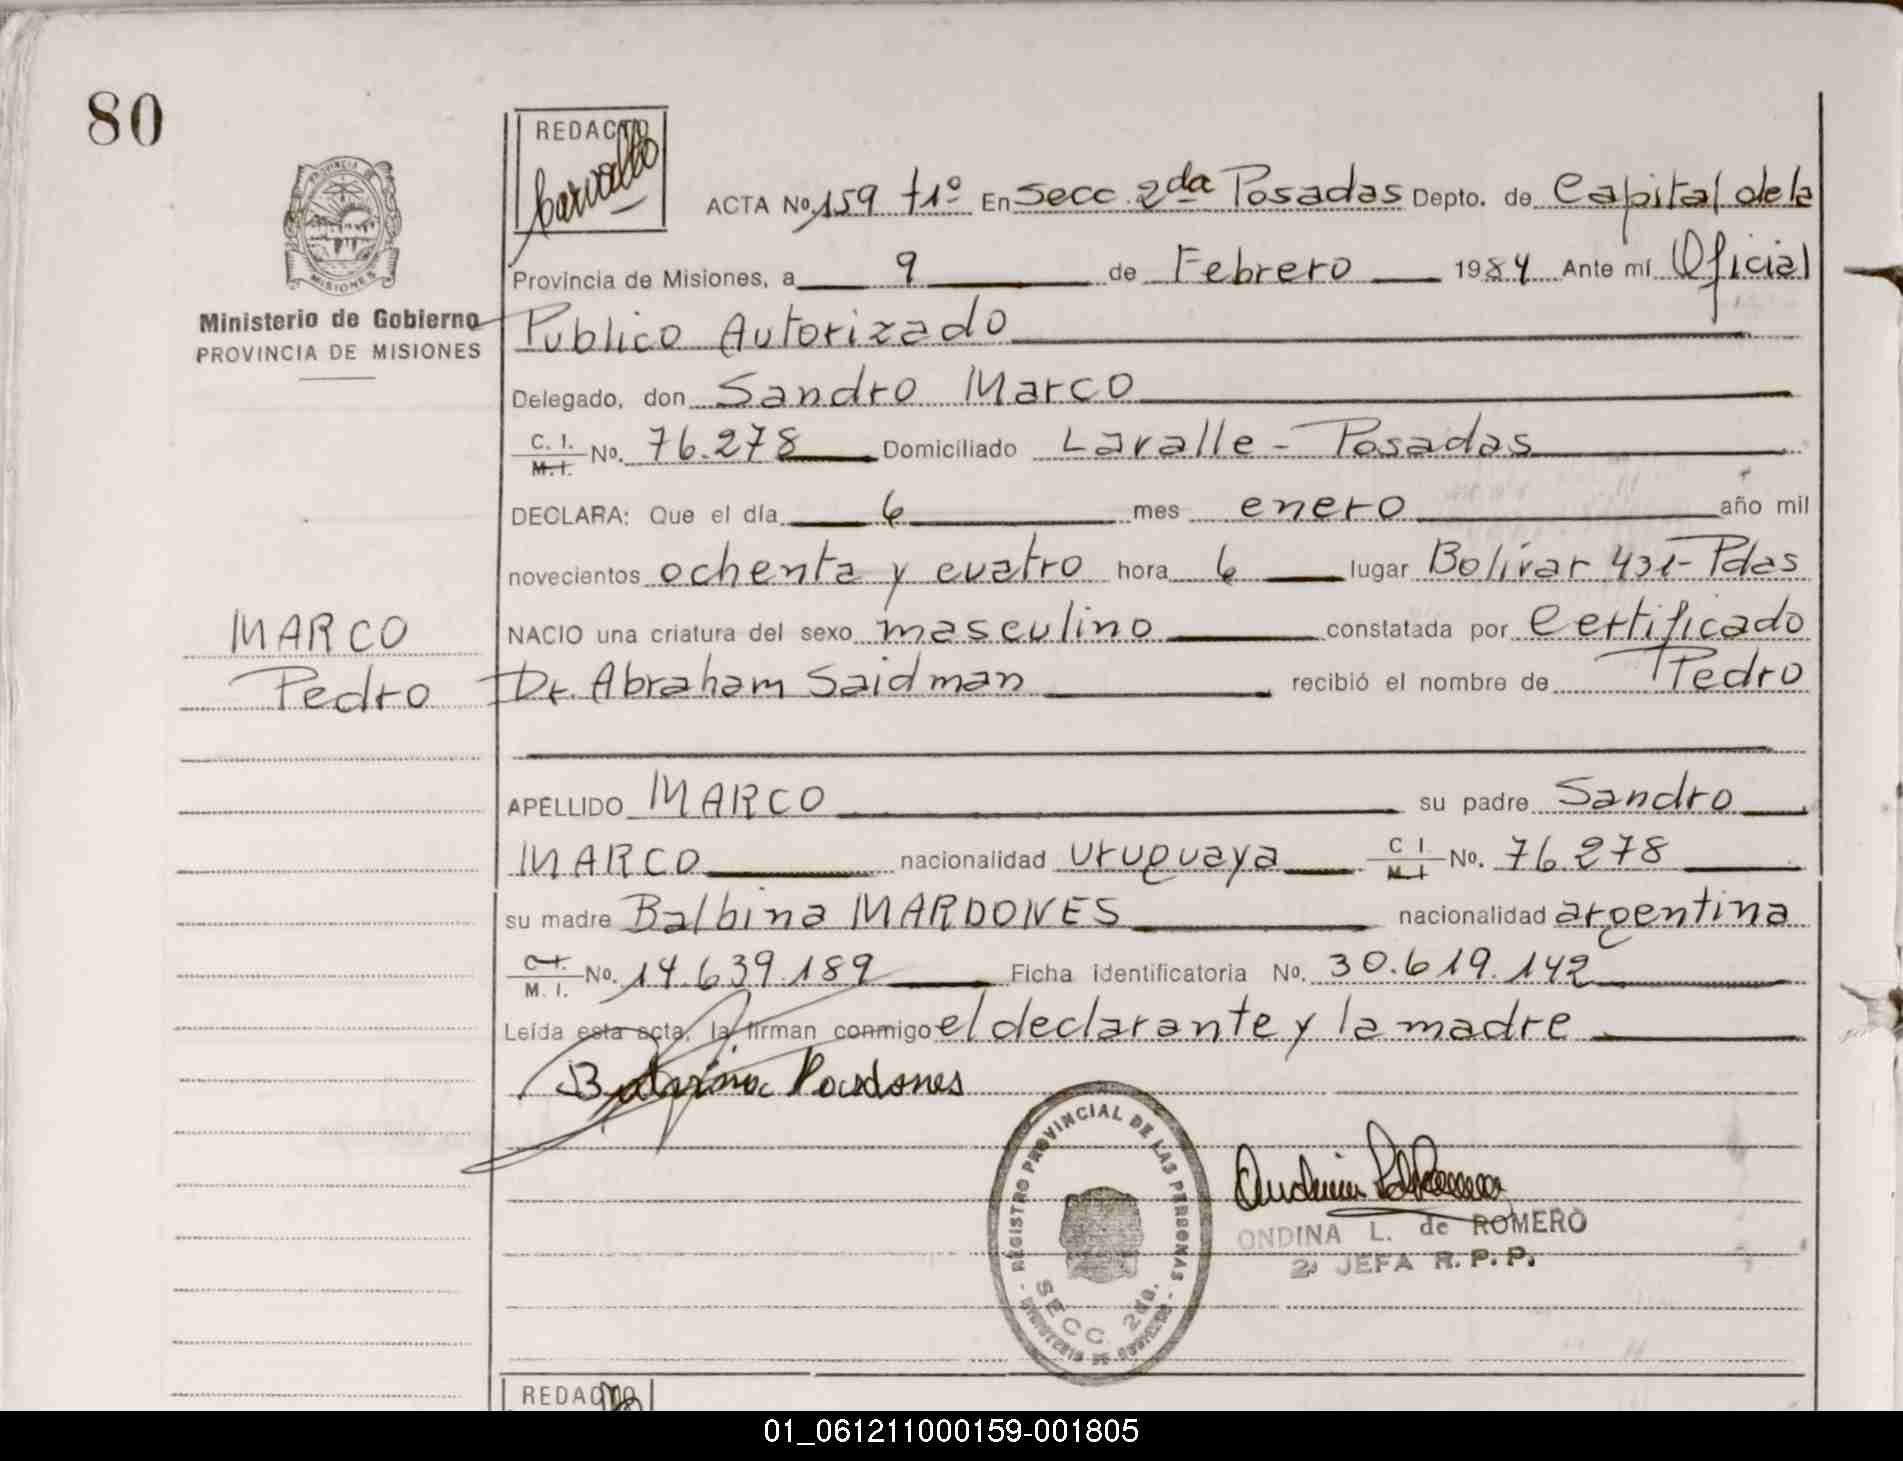 80
REDACTO
Carvallo
ACTA No. 159 t1º En Secc. 2da Posadas Depto. de Capital de la
Provincia de Misiones, a 9 de Febrero 1984 Ante mí Oficial
Ministerio de Gobierno
PROVINCIA DE MISIONES
Publico Autorizado
Delegado, don Sandro Marco
C. I. M. I. No. 76.278 Domiciliado Lavalle - Posadas
DECLARA: Que el día 6 mes enero año mil
novecientos ochenta y cuatro hora 6 lugar Bolívar 431- Pdas
MARCO
NACIO una criatura del sexo masculino constatada por Certificado
Pedro
Dr. Abraham Saidman recibió el nombre de Pedro
APELLIDO MARCO su padre Sandro
MARCO nacionalidad uruguaya C I M I No. 76.278
su madre Balbina MARDONES nacionalidad argentina
C. I. M. I. No. 14.639.189 Ficha identificatoria No. 30.619.142
Leída esta acta, la firman conmigo el declarante y la madre
PROVINCIA
MISIONES
REGISTRO PROVINCIAL DE LAS PERSONAS
SECC. 2da.
MINISTERIO DE GOBIERNO
ONDINA L. de ROMERO
2ª JEFA R. P. P.
REDACTO
01_061211000159-001805